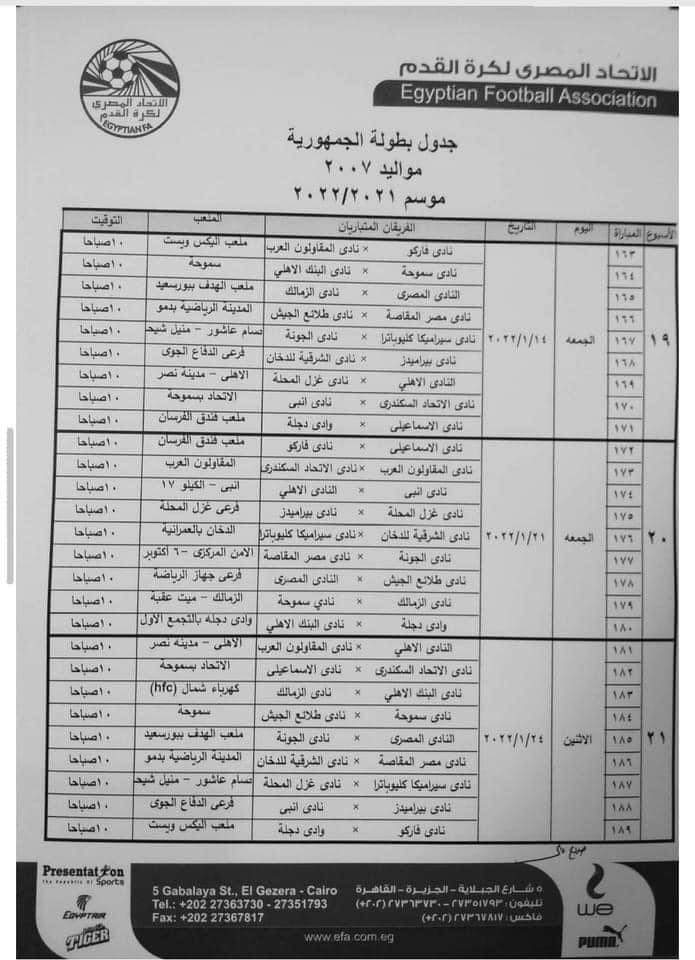 الاتحاد المصرى لكرة القدم
Egyptian Football Association
الاتحاد المصرى
لكرة القدم
EGYPTIAN FA
جدول بطولة الجمهورية
مواليد ٢٠٠٧
موسم ٢٠٢٢/٢٠٢١
الأسبوع المباراة اليوم التاريخ الفريقان المتباريان الملعب التوقيت
١٩ الجمعه ٢٠٢٢/١/١٤
١٦٣ نادى فاركو × نادى المقاولون العرب ملعب اليكس ويست ١٠صباحا
١٦٤ نادى سموحة × نادى البنك الاهلي سموحة ١٠صباحا
١٦٥ النادى المصرى × نادى الزمالك ملعب الهدف ببورسعيد ١٠صباحا
١٦٦ نادى مصر المقاصة × نادى طلائع الجيش المدينة الرياضية بدمو ١٠صباحا
١٦٧ نادى سيراميكا كليوباترا × نادى الجونة حسام عاشور – منيل شيحه ١٠صباحا
١٦٨ نادى بيراميدز × نادى الشرقية للدخان فرعى الدفاع الجوى ١٠صباحا
١٦٩ النادى الاهلي × نادى غزل المحلة الاهلى – مدينة نصر ١٠صباحا
١٧٠ نادى الاتحاد السكندرى × نادى انبى الاتحاد بسموحة ١٠صباحا
١٧١ نادى الاسماعيلى × وادى دجلة ملعب فندق الفرسان ١٠صباحا
٢٠ الجمعه ٢٠٢٢/١/٢١
١٧٢ نادى الاسماعيلى × نادى فاركو ملعب فندق الفرسان ١٠صباحا
١٧٣ نادى المقاولون العرب × نادى الاتحاد السكندرى المقاولون العرب ١٠صباحا
١٧٤ نادى انبى × النادى الاهلي انبى – الكيلو ١٧ ١٠صباحا
١٧٥ نادى غزل المحلة × نادى بيراميدز فرعى غزل المحلة ١٠صباحا
١٧٦ نادى الشرقية للدخان × نادى سيراميكا كليوباترا الدخان بالعمرانية ١٠صباحا
١٧٧ نادى الجونة × نادى مصر المقاصة الامن المركزى – ٦ أكتوبر ١٠صباحا
١٧٨ نادى طلائع الجيش × النادى المصرى فرعى جهاز الرياضة ١٠صباحا
١٧٩ نادى الزمالك × نادي سموحة الزمالك – ميت عقبة ١٠صباحا
١٨٠ وادى دجلة × نادى البنك الاهلي وادى دجله بالتجمع الأول ١٠صباحا
٢١ الاثنين ٢٠٢٢/١/٢٤
١٨١ النادى الاهلي × نادى المقاولون العرب الاهلى – مدينه نصر ١٠صباحا
١٨٢ نادى الاتحاد السكندرى × نادى الاسماعيلى الاتحاد بسموحة ١٠صباحا
١٨٣ نادى البنك الاهلي × نادى الزمالك كهرباء شمال (hfc) ١٠صباحا
١٨٤ نادى سموحة × نادى طلائع الجيش سموحة ١٠صباحا
١٨٥ النادى المصرى × نادى الجونة ملعب الهدف ببورسعيد ١٠صباحا
١٨٦ نادى مصر المقاصة × نادى الشرقية للدخان المدينة الرياضية بدمو ١٠صباحا
١٨٧ نادى سيراميكا كليوباترا × نادى غزل المحلة حسام عاشور – منيل شيحه ١٠صباحا
١٨٨ نادى بيراميدز × نادى انبى فرعى الدفاع الجوى ١٠صباحا
١٨٩ نادى فاركو × وادى دجلة ملعب اليكس ويست ١٠صباحا
Presentation
Sports
EGYPTAIR
TIGER
5 Gabalaya St., El Gezera - Cairo
Tel.: +202 27363730 - 27351793
Fax: +202 27367817
٥ شارع الجبلاية – الجزيرة – القاهرة
تليفون: ٢٧٣٥١٧٩٣ – ٢٧٣٦٣٧٣٠ (٢٠٢+)
فاكس: ٢٧٣٦٧٨١٧ (٢٠٢+)
www.efa.com.eg
we
PUMA